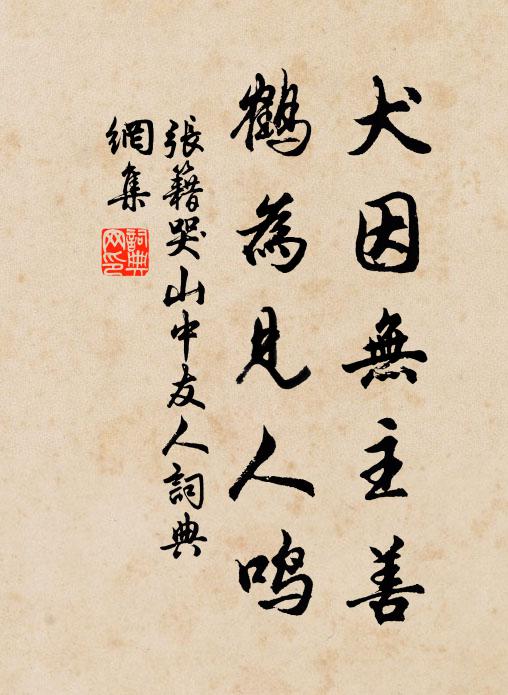 犬因無主善
鶴為見人鳴
張籍哭山中友人詞典
網集
詞典
网印